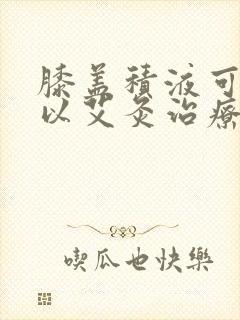 膝盖積液可
以艾灸治療
喫瓜也快樂